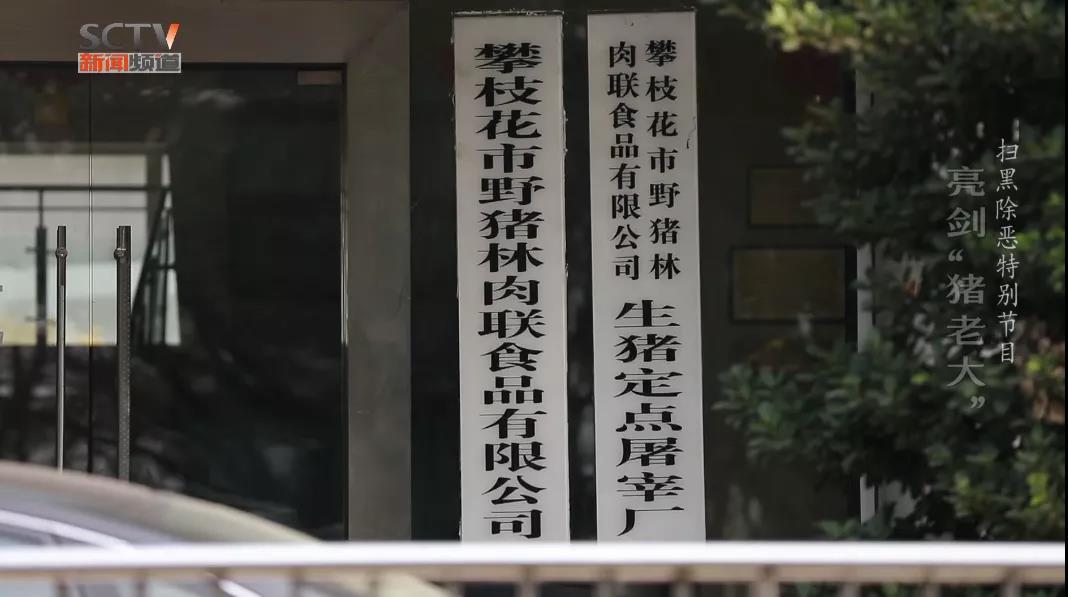 SCTV
新闻频道
攀枝花市野猪林肉联食品有限公司
攀枝花市野猪林
肉联食品有限公司
生猪定点屠宰厂
扫黑除恶特别节目
亮剑“猪老大”